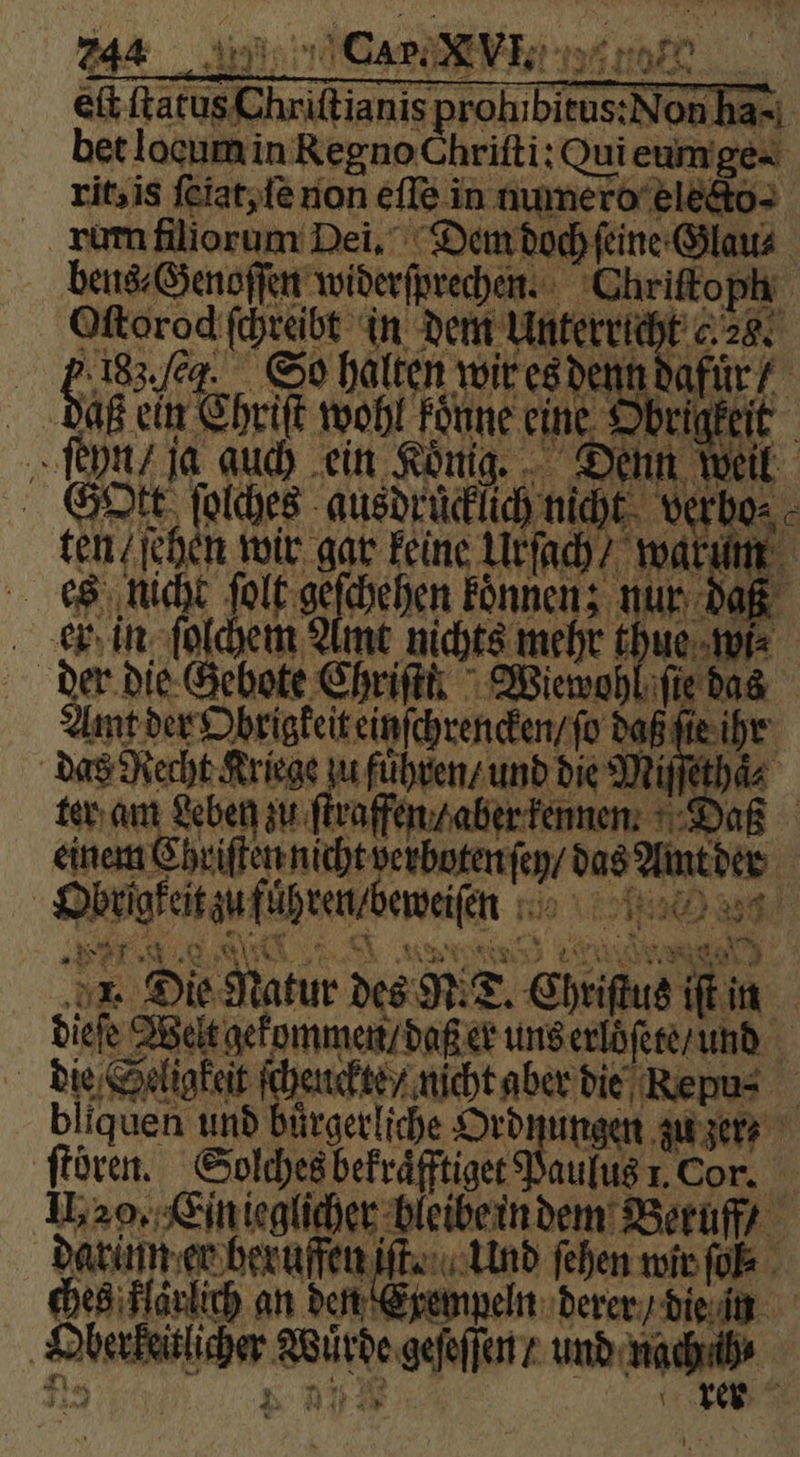 744 CAP. XVI.
eſt ſtatus Chriſtianis prohibitus: Non ha-
bet locum in Regno Chriſti: Qui eum ge-
rit, is ſciat, ſe non eſſe in numero electo-
rum filiorum Dei. Dem doch ſeine Glau⸗
bens⸗Genoſſen widerſprechen. Chriſtoph
Oſtorod ſchreibt in dem Unterricht c. 28.
p. 183. ſeq. So halten wir es denn dafuͤr/
daß ein Chriſt wohl koͤnne eine Obrigkeit
ſeyn/ ja auch ein Koͤnig. Denn weil
GOtt ſolches ausdruͤcklich nicht verbo⸗
ten/ ſehen wir gar keine Urſach/ warum
es nicht ſolt geſchehen koͤnnen; nur daß
er in ſolchem Amt nichts mehr thue wi⸗
der die Gebote Chriſti. Wiewohl ſie das
Amt der Obrigkeit einſchrencken/ ſo daß ſie ihr
das Recht Kriege zu fuͤhren/ und die Miſſethaͤ⸗
ter am Leben zu ſtraffen/ aberkennen. Daß
einem Chriſten nicht verboten ſey/ das Amt der
Obrigkeit zu fuͤhren/ beweiſen
1. Die Natur des N. T. Chriſtus iſt in
dieſe Welt gekommen/ daß er uns erloͤſete/ und
die Seligkeit ſchenckte/ nicht aber die Repu-
bliquen und buͤrgerliche Ordnungen zu zer⸗
ſtoͤren. Solches bekraͤfftiget Paulus 1. Cor.
II, 20. Ein ieglicher bleibe in dem Beruff/
darinn er beruffen iſt. Und ſehen wir ſol⸗
ches klaͤrlich an den Exempeln derer/ die in
Oberkeitlicher Wuͤrde geſeſſen/ und nach ih⸗
rer